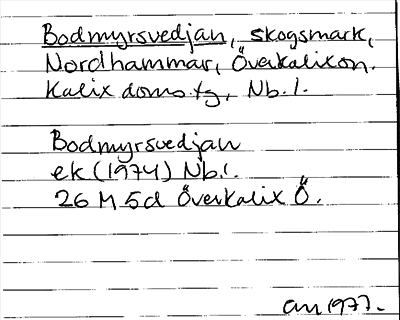 Bodmyrsvedjan, skogsmark,
Nordhammar, Överkalix sn.
Kalix doms.tg, Nb.l.
Bodmyrsvedjan
ek (1974) Nb.l.
26 M 5d Överkalix Ö.
an 1977.